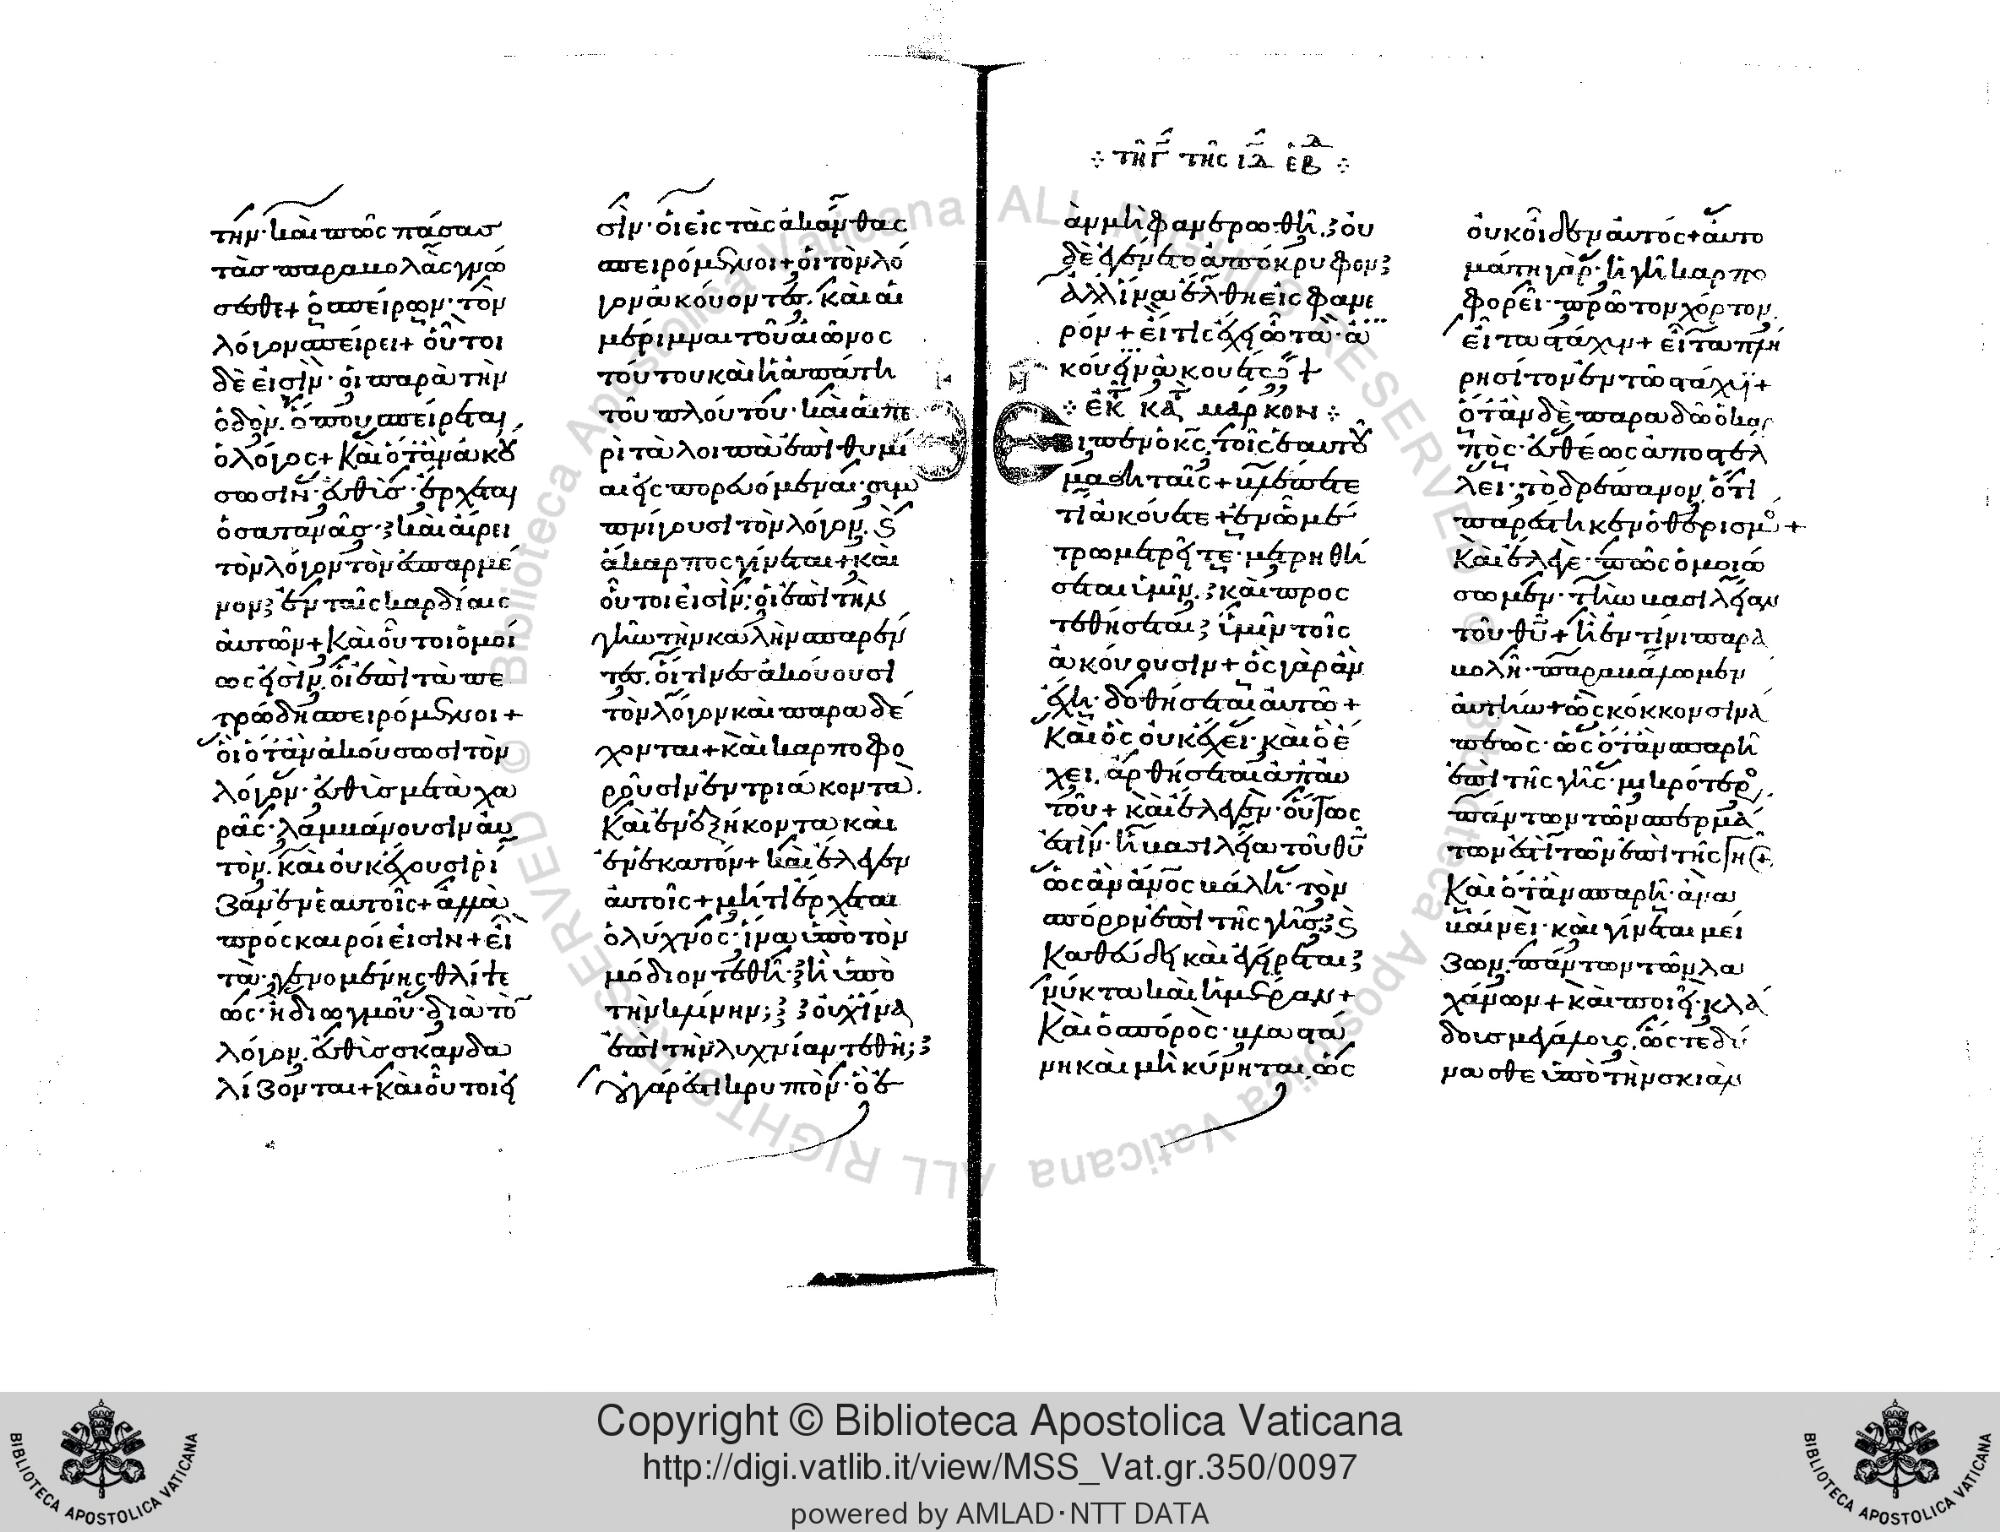 την· και πῶς πάσας
τὰς παραβολὰς γνώ
σεσθε+ ὁ σπείρων· τὸν
λόγον σπείρει+ οὗτοι
δὲ εἰσὶν· οἱ παρὰ τὴν
ὁδὸν. ὅπου σπείρεται
ὁ λόγος+ Καὶ ὅταν ἀκού
σωσιν· εὐθὺς· ἔρχεται
ὁ σατανᾶς· καὶ αἴρει
τὸν λόγον τὸν ἐσπαρμέ
νον ἐν ταῖς καρδίαις
αὐτῶν+ Καὶ οὗτοι ὁμοί
ως εἰσὶν. οἱ ἐπὶ τὰ πε
τρώδη σπειρόμενοι+
οἳ ὅταν ἀκούσωσι τὸν
λόγον· εὐθὺς μετὰ χα
ρᾶς· λαμβάνουσιν αὐ
τὸν. καὶ οὐκ ἔχουσι ῥί
ζαν ἐν ἑαυτοῖς+ ἀλλὰ
πρόσκαιροί εἰσιν+ εἶ
τα· γενομένης θλίψε
ως· ἢ διωγμοῦ· διὰ τὸν
λόγον. εὐθὺς σκανδα
λίζονται+ καὶ οὗτοι εἰ
σὶν· οἱ εἰς τὰς ἀκάνθας
σπειρόμενοι+ οἱ τὸν λό
γον ἀκούοντες. καὶ αἱ
μέριμναι τοῦ αἰῶνος
τούτου καὶ ἡ ἀπάτη
τοῦ πλούτου· καὶ αἱ πε
ρὶ τὰ λοιπὰ ἐπιθυμί
αι εἰσπορευόμεναι· συμ
πνίγουσι τὸν λόγον. καὶ
ἄκαρπος γίνεται+ καὶ
οὗτοι εἰσὶν· οἱ ἐπὶ τὴν
γῆν τὴν καλὴν σπαρέν
τες. οἵτινες ἀκούουσι
τὸν λόγον καὶ παραδέ
χονται+ καὶ καρποφο
ροῦσιν ἐν τριάκοντα.
Καὶ ἐν ἑξήκοντα καὶ
ἐν ἑκατόν+ καὶ ἔλεγεν
αὐτοῖς+ μήτι ἔρχεται
ὁ λύχνος· ἵνα ὑπὸ τὸν
μόδιον τεθῆ· ἢ ὑπὸ
τὴν κλίνην; οὐχ ἵνα
ἐπὶ τὴν λυχνίαν τεθῆ;
οὐ γάρ ἐστι κρυπτὸν· ὃ ἐ
⁘ τῇ Γ τῆς ΙΔ ἑβδ ⁘
ὰν μὴ φανερωθῆ. οὐ
δὲ ἐγένετο ἀπόκρυφον
ἀλλ' ἵνα ἔλθη εἰς φανε
ρόν+ εἴ τις ἔχει ὦτα· ἀ
κούειν ἀκουέτω+
⁘ ἐκ κατ μάρκον ⁘
ιπεν ὁ κς τοῖς ἑαυτοῦ
μαθηταῖς+ βλέπετε
τί ἀκούετε+ ἐν ᾧ μέ
τρω μετρεῖτε· μετρηθή
σεται ὑμῖν. καὶ προς
τεθήσεται ὑμῖν τοῖς
ἀκούουσιν+ ὃς γὰρ ἂν
ἔχη· δοθήσεται αὐτῶ+
Καὶ ὃς οὐκ ἔχει· καὶ ὃ ἔ
χει. ἀρθήσεται ἀπ' αὐ
τοῦ+ καὶ ἔλεγεν· οὕτως
ἐστὶν· ἡ βασιλεία τοῦ θυ
ὡς ἂν ἄνος βάλη· τὸν
σπόρον ἐπὶ τῆς γῆς καὶ
καθεύδη καὶ ἐγείρεται
νύκτα καὶ ἡμέραν+
Καὶ ὁ σπόρος· βλαστά
νη καὶ μηκύνηται, ὡς
οὐκ οἶδεν αὐτός+ αὐτο
μάτη γὰρ· ἡ γῆ καρπο
φορεῖ· πρῶτον χόρτον.
εἶτα στάχυν+ εἶτα πλή
ρη σῖτον ἐν τῶ στάχυϊ+
ὅταν δὲ παραδῶ ὁ καρ
πὸς· εὐθέως ἀποστέλ
λει· τὸ δρέπανον, ὅτι
παρέστηκεν ὁ θερισμὸς+
Καὶ ἔλεγε· πῶς ὁμοιώ
σωμεν· τὴν βασιλείαν
τοῦ θυ+ ἢ ἐν τίνι παρα
βολῆ· παραβάλωμεν
αὐτὴν+ ὡς κόκκον σινά
πεως· ὡς ὅταν σπαρῆ
ἐπὶ τῆς γῆς· μικρότερος
πάντων τῶν σπερμά
των ἐστὶ τῶν ἐπὶ τῆς γῆς+
Καὶ ὅταν σπαρῆ· ἀνα
βαίνει· καὶ γίνεται μεί
ζων. πάντων τῶν λα
χάνων+ καὶ ποιεῖ· κλά
δους μεγάλους, ὥστε δύ
νασθε ὑπὸ τὴν σκιὰν
Copyright © Biblioteca Apostolica Vaticana
http://digi.vatlib.it/view/MSS_Vat.gr.350/0097
powered by AMLAD·NTT DATA
BIBLIOTECA APOSTOLICA VATICANA
BIBLIOTECA APOSTOLICA VATICANA